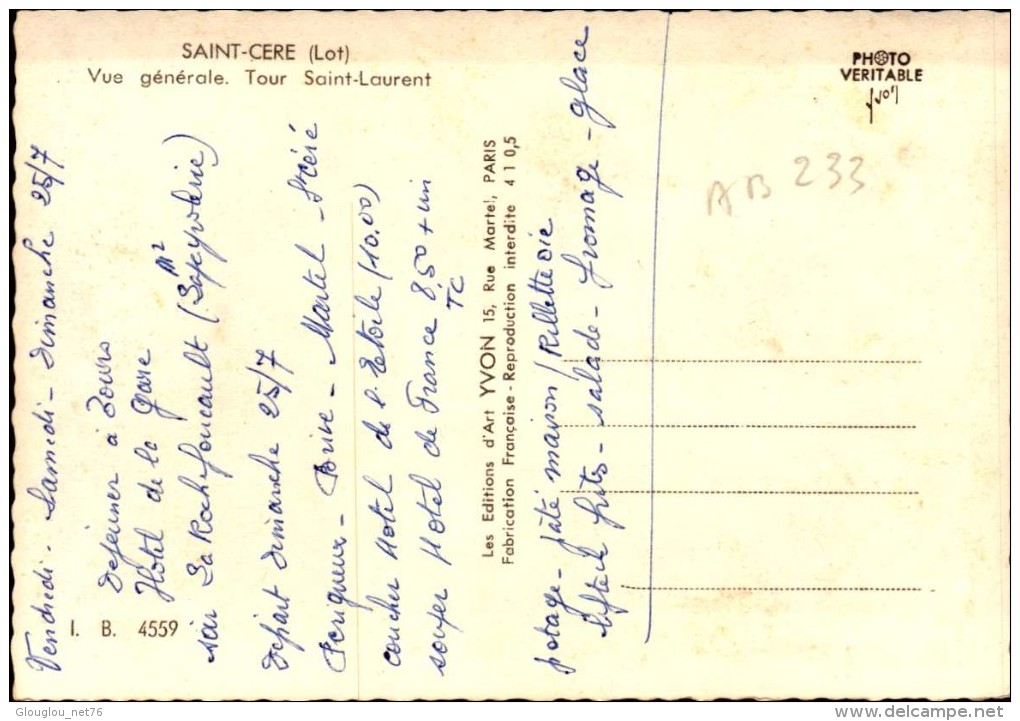 SAINT-CERE (Lot)
Vue générale. Tour Saint-Laurent
PHOTO
VERITABLE
yvon
AB 233
I. B. 4559
Vendredi - Samedi - Dimanche 25/7
Dejeuner à
Hotel de la gare
La Rochefoucault
Depart Dimanche 25/7
Perigueux - Brive - Martel - St Céré
coucher Hotel de l'Etoile (10.00)
souper Hotel de France 8,50 + vin
TC
Les Editions d'Art YVON 15, Rue Martel, PARIS
Fabrication Française - Reproduction interdite 4 1 0,5
potage - pâté maison / Rillette
bifteck frits - salade - fromage - glace
Glouglou_net76
delcampe.net